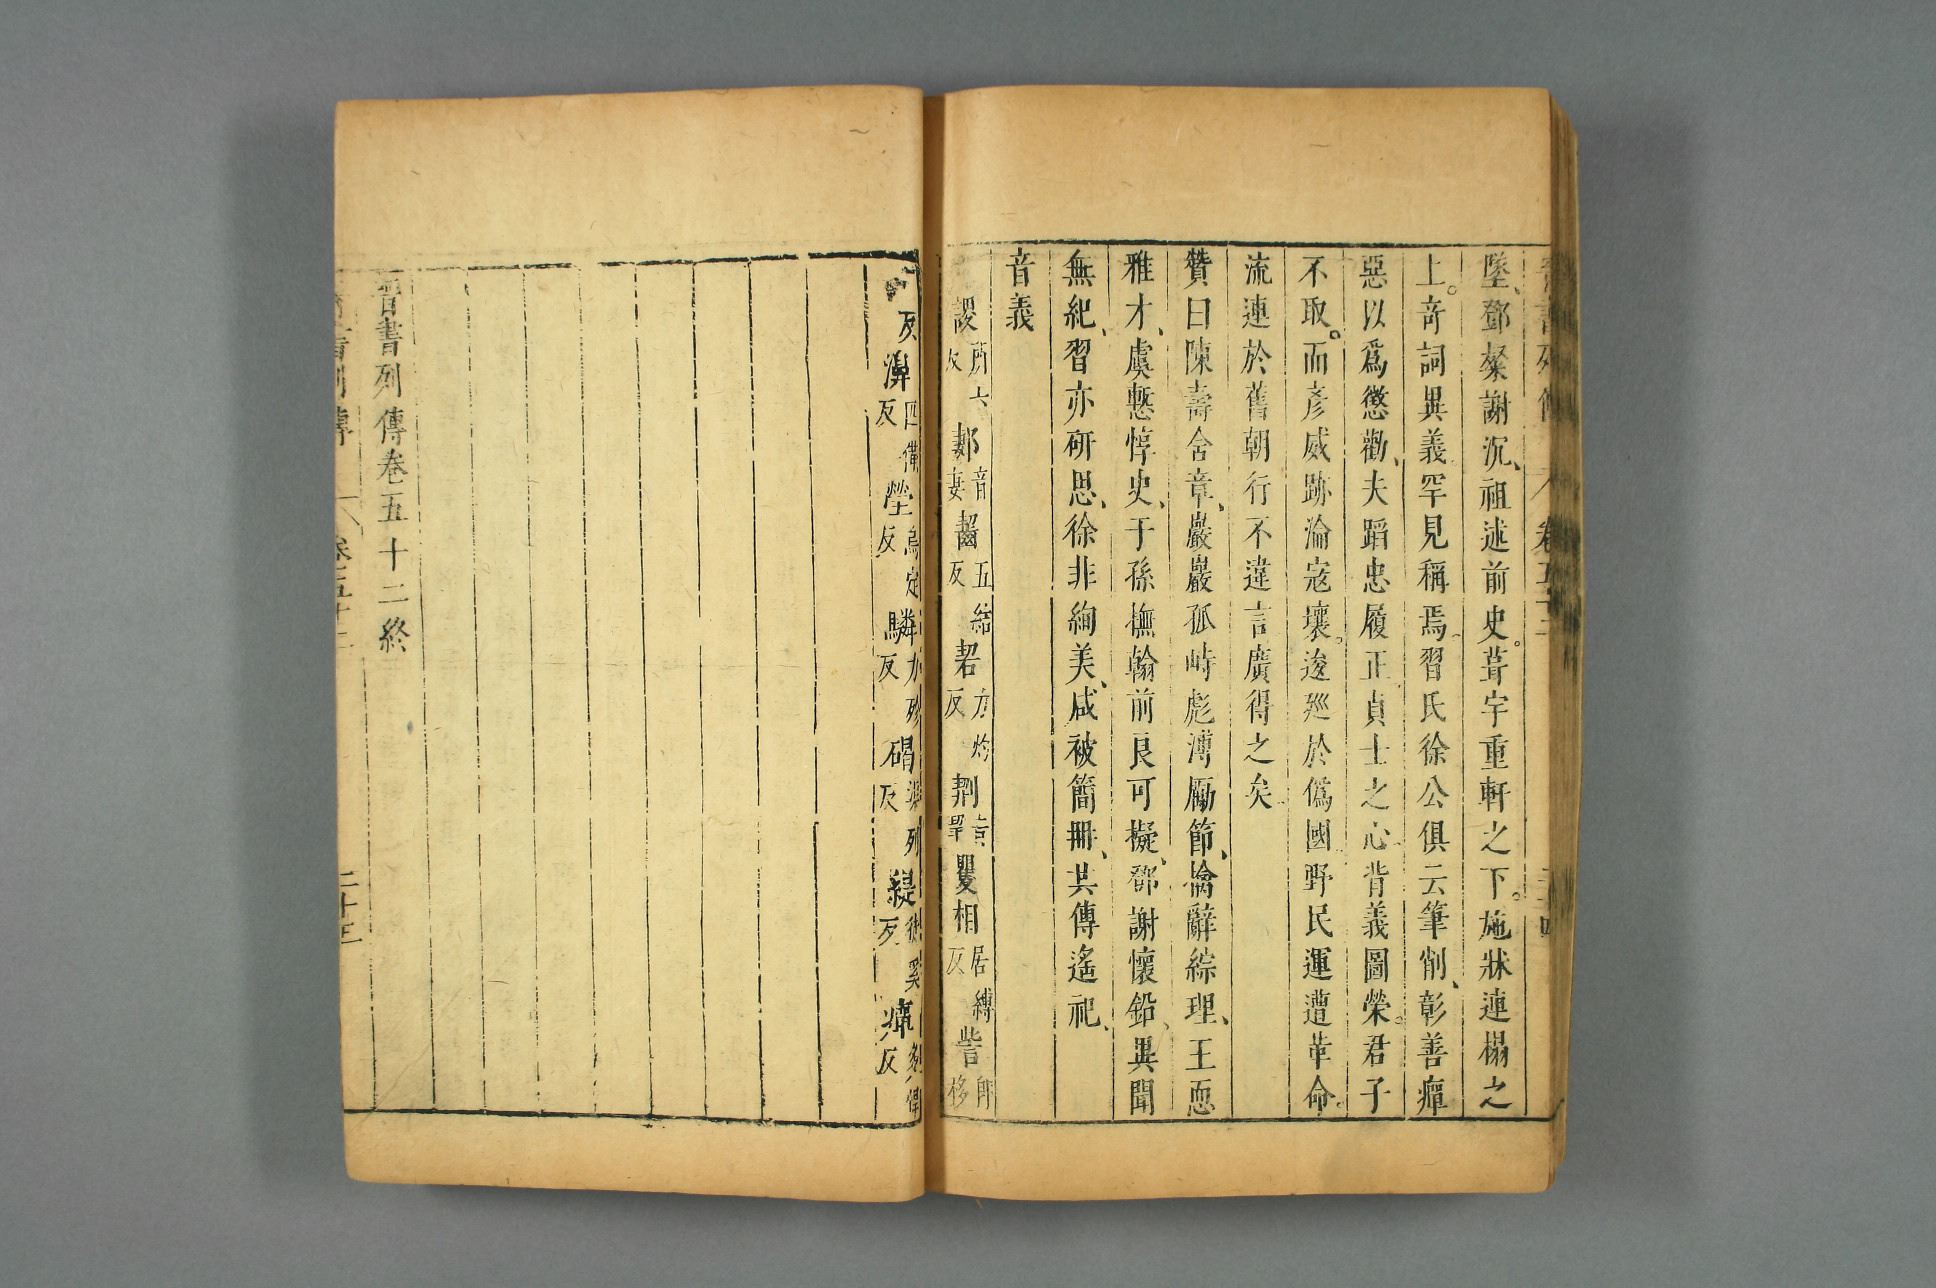 晉書列傳 卷五十二
墜鄧粲謝沉祖述前史葺宇重軒之下施牀連榻之
上奇詞異義罕見稱焉習氏徐公俱云筆削彰善癉
惡以爲懲勸夫蹈忠履正貞士之心背義圖榮君子
不取而彥威跡淪寇壤逡巡於僞國野民運遭革命
流連於舊朝行不違言廣得之矣
贊曰陳壽含章巖巖孤峙彪溥勵節摛辭綜理王恧
雅才虞慙惇史于孫撫翰前良可擬鄧謝懷鉛異聞
無紀習亦研思徐非絢美咸被簡冊共傳遙祀
音義
謖所六反 鄴音妻 齧五結反 䂮力灼反 荆音 矍相居縛反 訾郎移
反 濞匹備反 瑩烏定反 驎力珍反 碣渠列反 緹徒奚反 癉多憚反
晉書列傳卷五十二終
晉書列傳 卷五十二 二十三